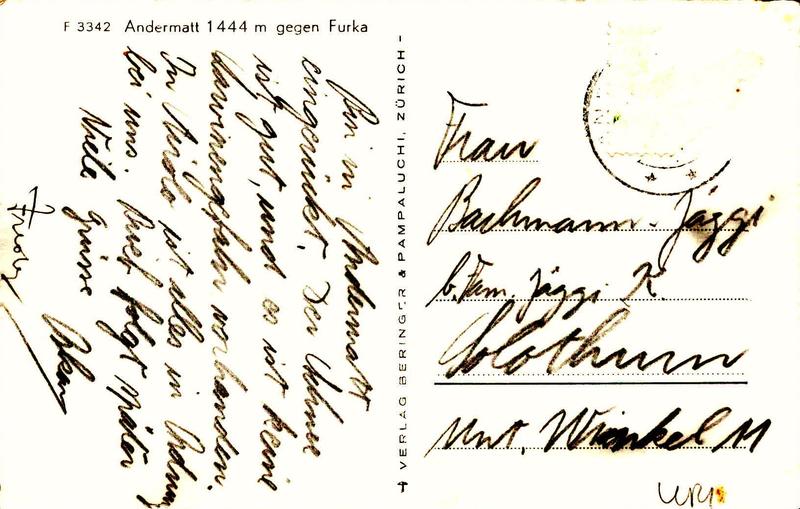 F 3342 Andermatt 1444 m gegen Furka
Bin in Andermatt
eingerückt. Der Schnee
ist gut, und es ist keine
Lawinengefahr vorhanden.
In Airolo ist alles in Ordnung
bei uns. Brief folgt später
Viele Grüsse
Oskar
VERLAG BERINGER & PAMPALUCHI, ZÜRICH
Frau
Bachmann-Jäggi
b. Fam. Jäggi K.
Solothurn
Unt. Winkel 11
URI